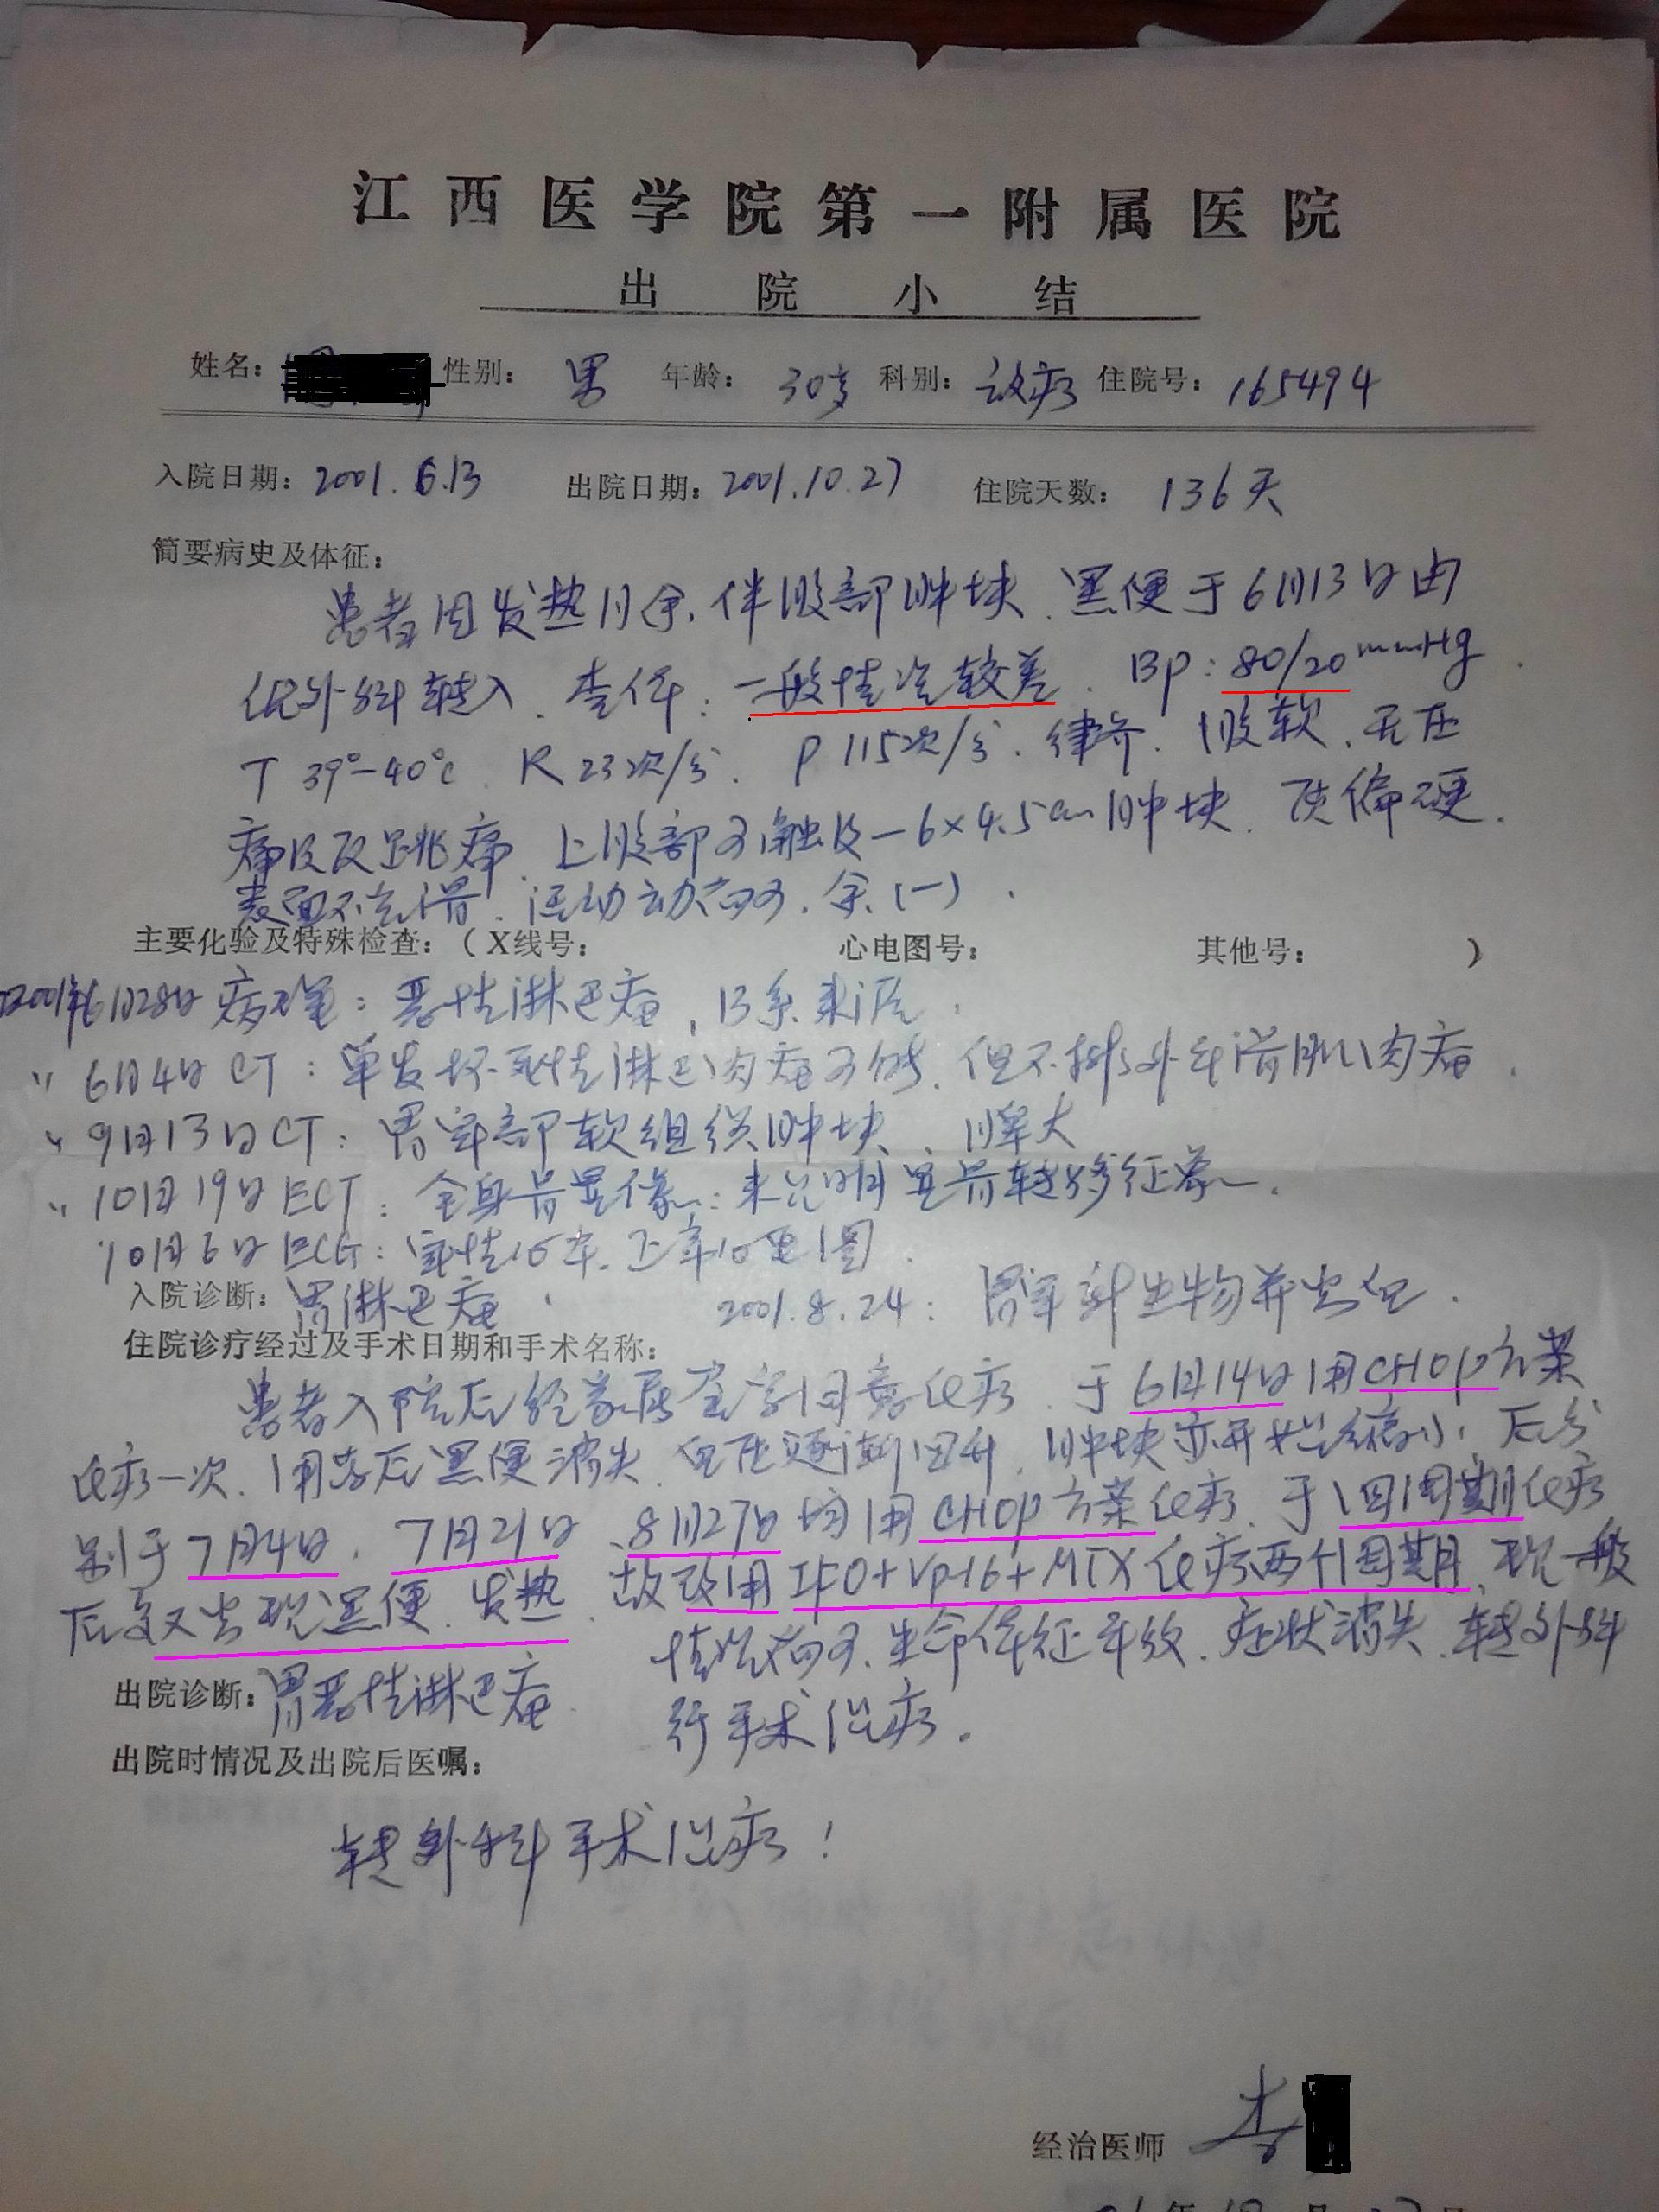 江西医学院第一附属医院
出院小结
姓名： 性别： 男 年龄： 30岁 科别： 放疗 住院号： 165494
入院日期： 2001.6.13 出院日期： 2001.10.27 住院天数： 136天
简要病史及体征：
患者因发热1月余，伴腹部肿块、黑便于6月13日由
外科转入。查体：一般情况较差、BP：80/20mmHg
T 39°-40℃、R 23次/分、P 115次/分、律齐、腹软、无压
痛及反跳痛、上腹部可触及一6×4.5cm肿块、质偏硬、
表面不光滑、活动尚可、余（一）.
主要化验及特殊检查：（X线号： 心电图号： 其他号： ）
2001年6月28日病理：恶性淋巴瘤，B系来源.
〃 6月4日CT：单发坏死性淋巴肉瘤可能、但不排外平滑肌肉瘤.
〃 9月13日CT：胃窦部软组织肿块、脾大
〃 10月19日ECT：全身骨显像：未见明显骨转移征象.
10月6日ECG：窦性心率、正常心电图.
入院诊断：胃淋巴瘤. 2001.8.24：胃窦新生物并出血.
住院诊疗经过及手术日期和手术名称：
患者入院后经家属签字同意化疗、于6月14日用CHOP方案
化疗一次、用药后黑便消失、血压逐渐回升、肿块亦开始缩小、后分
别于7月4日、7月21日、8月27日均用CHOP方案化疗、于四周期化疗
后又出现黑便、发热、故改用IFO+Vp-16+MTX化疗两个周期、现一般
情况尚可、生命体征平稳、症状消失、转外科
行手术治疗。
出院诊断：胃恶性淋巴瘤
出院时情况及出院后医嘱：
转外科手术治疗！
经治医师 李